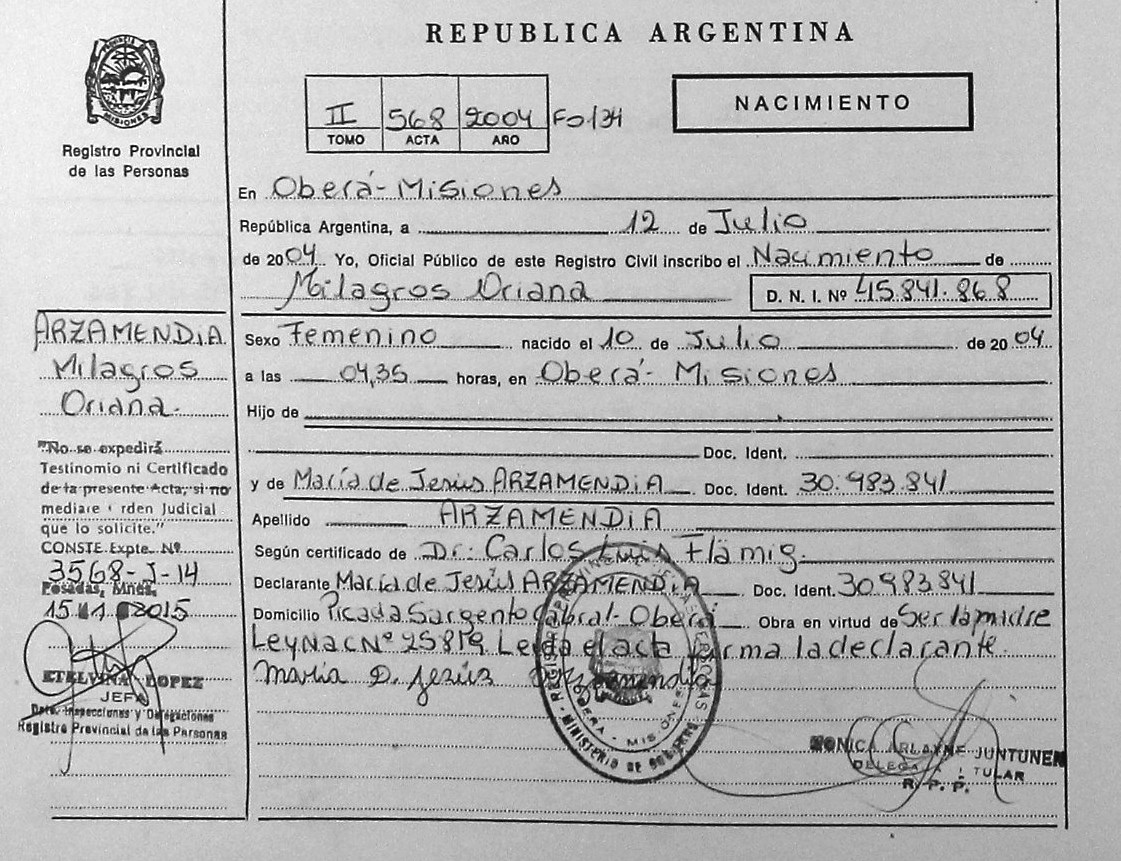 REPUBLICA ARGENTINA
MISIONES
Registro Provincial
de las Personas
II 568 2004 Fo 134
TOMO ACTA AÑO
NACIMIENTO
En Oberá-Misiones
República Argentina, a 12 de Julio
de 2004 Yo, Oficial Público de este Registro Civil inscribo el Nacimiento de
Milagros Oriana D. N. I. Nº 45.841.868
Sexo Femenino nacido el 10 de Julio de 2004
a las 04,35 horas, en Oberá- Misiones
Hijo de
Doc. Ident.
y de María de Jesús ARZAMENDiA Doc. Ident. 30.983.841
Apellido ARZAMENDiA
Según certificado de Dr. Carlos Luis Flämig.
Declarante María de Jesús ARZAMENDiA Doc. Ident. 30983841
Domicilio Picada Sargento Cabral-Oberá Obra en virtud de Ser la madre
Ley Nac Nº 25819 Leida el acta firma la declarante.
María D. Jesús Arzamendia
ARZAMENDiA
Milagros
Oriana.
"No se expedirá
Testimonio ni Certificado
de la presente Acta, si no
mediare orden Judicial
que lo solicite."
CONSTE Expte. Nº
3568-J-14
Posadas, Mnes.
15 2015
ETELVINA LOPEZ
JEFA
Dpto. Inspecciones y Delegaciones
Registro Provincial de las Personas
REGISTRO PROVINCIAL DE LAS PERSONAS
OBERA - MISIONES
MINISTERIO DE GOBIERNO
MONICA ARLAYNE JUNTUNEN
DELEGADA TITULAR
R. P. P.